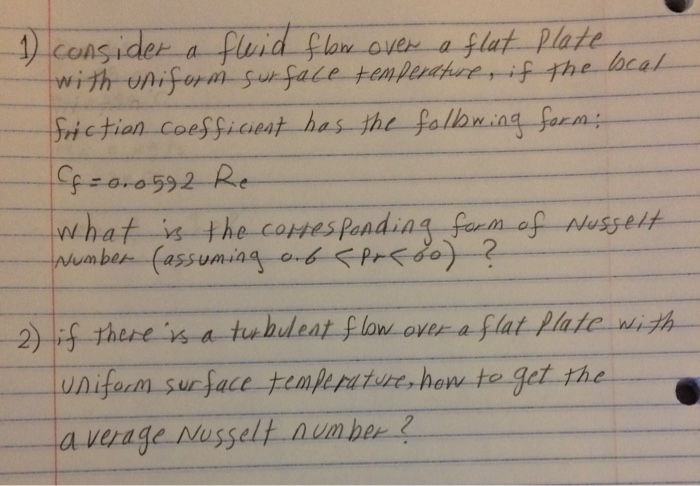 1) consider a fluid flow over a flat plate
with uniform surface temperature, if the local
friction coefficient has the following form:
Cf = 0.0592 Re
what is the corresponding form of Nusselt
Number (assuming 0.6 < Pr < 60) ?
2) if there is a turbulent flow over a flat plate with
uniform surface temperature, how to get the
average Nusselt number ?